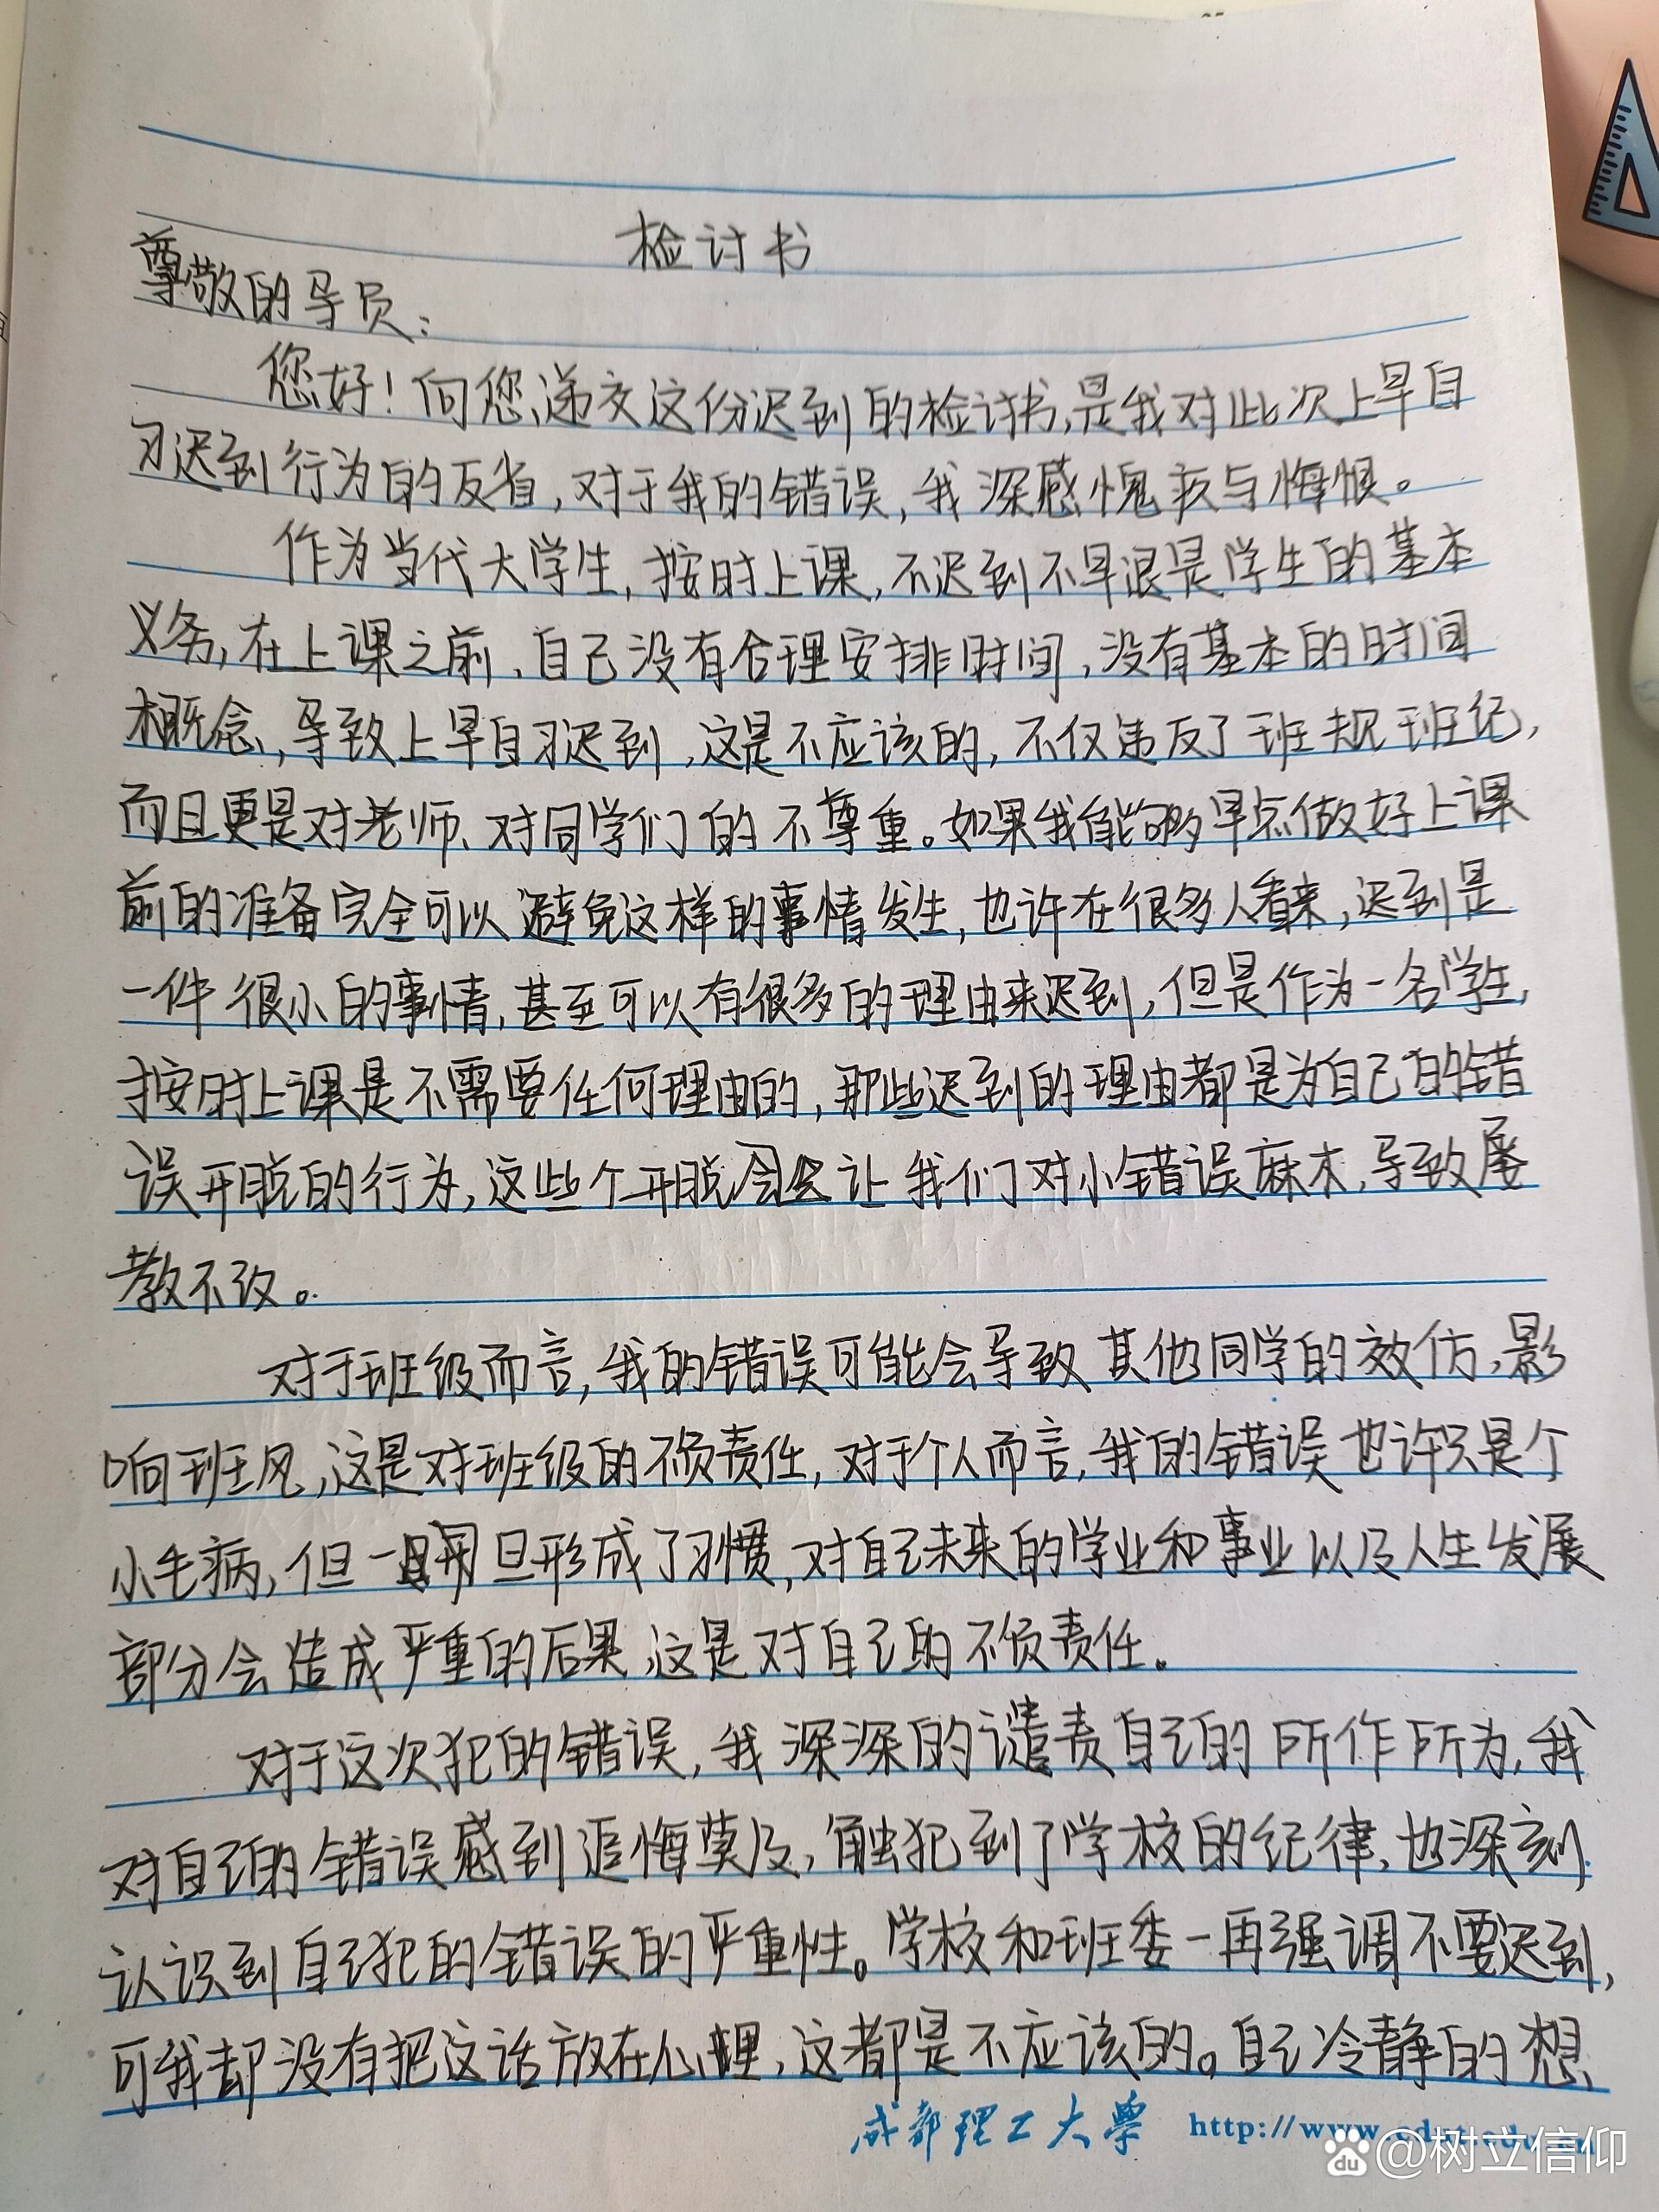 检讨书
尊敬的导员：
您好！向您递交这份迟到的检讨书，是我对此次上早自
习迟到行为的反省，对于我的错误，我深感愧疚与悔恨。
作为当代大学生，按时上课，不迟到不早退是学生的基本
义务，在上课之前，自己没有合理安排时间，没有基本的时间
概念，导致上早自习迟到，这是不应该的，不仅违反了班规班纪，
而且更是对老师、对同学们的不尊重。如果我能够早点做好上课
前的准备完全可以避免这样的事情发生，也许在很多人看来，迟到是
一件很小的事情，甚至可以有很多的理由来迟到，但是作为一名学生，
按时上课是不需要任何理由的，那些迟到的理由都是为自己的错
误开脱的行为，这些个开脱会让我们对小错误麻木，导致屡
教不改。
对于班级而言，我的错误可能会导致其他同学的效仿，影
响班风，这是对班级的不负责任，对于个人而言，我的错误也许只是个
小毛病，但一旦形成了习惯，对自己未来的学业和事业以及人生发展
部分会造成严重的后果，这是对自己的不负责任。
对于这次犯的错误，我深深的谴责自己的所作所为，我
对自己的错误感到追悔莫及，触犯到了学校的纪律，也深刻
认识到自己犯的错误的严重性。学校和班委一再强调不要迟到，
可我却没有把这话放在心理，这都是不应该的。自己冷静的想，
成都理工大学 http://www.cdut.edu.cn
du @树立信仰